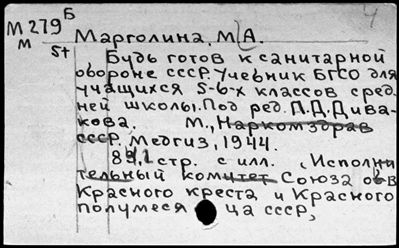 Б 4
М 279 Марголина, М.А.
М 5+
Будь готов к санитарной
обороне СССР. Учебник БГСО для
учащихся 5-6-х классов сред-
ней школы. Под ред. Л.Д. Дива-
кова. М., Наркомздрав
СССР. Медгиз, 1944.
стр. с илл. (Исполни
тельный комитет Союза о-в
Красного креста и Красного
полумеся ца СССР,